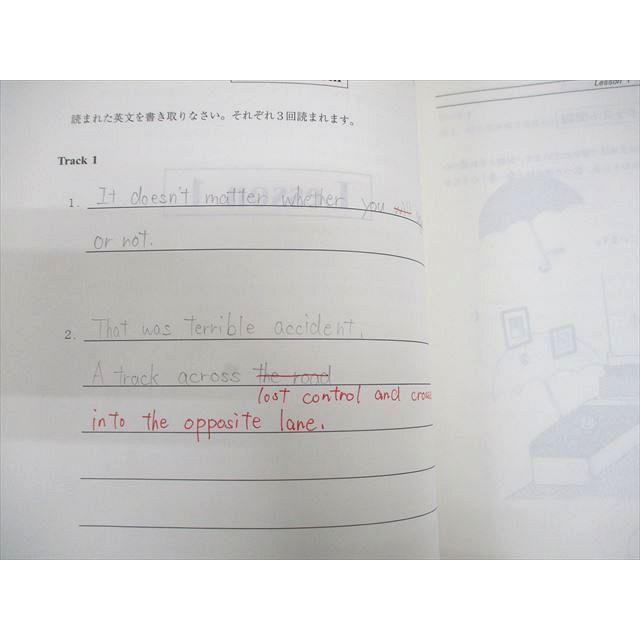 Lesson 1
読まれた英文を書き取りなさい。それぞれ3回読まれます。
Track 1
1. It doesn't matter whether you
or not.
2. That was terrible accident.
A track across the road
lost control and
into the opposite lane.